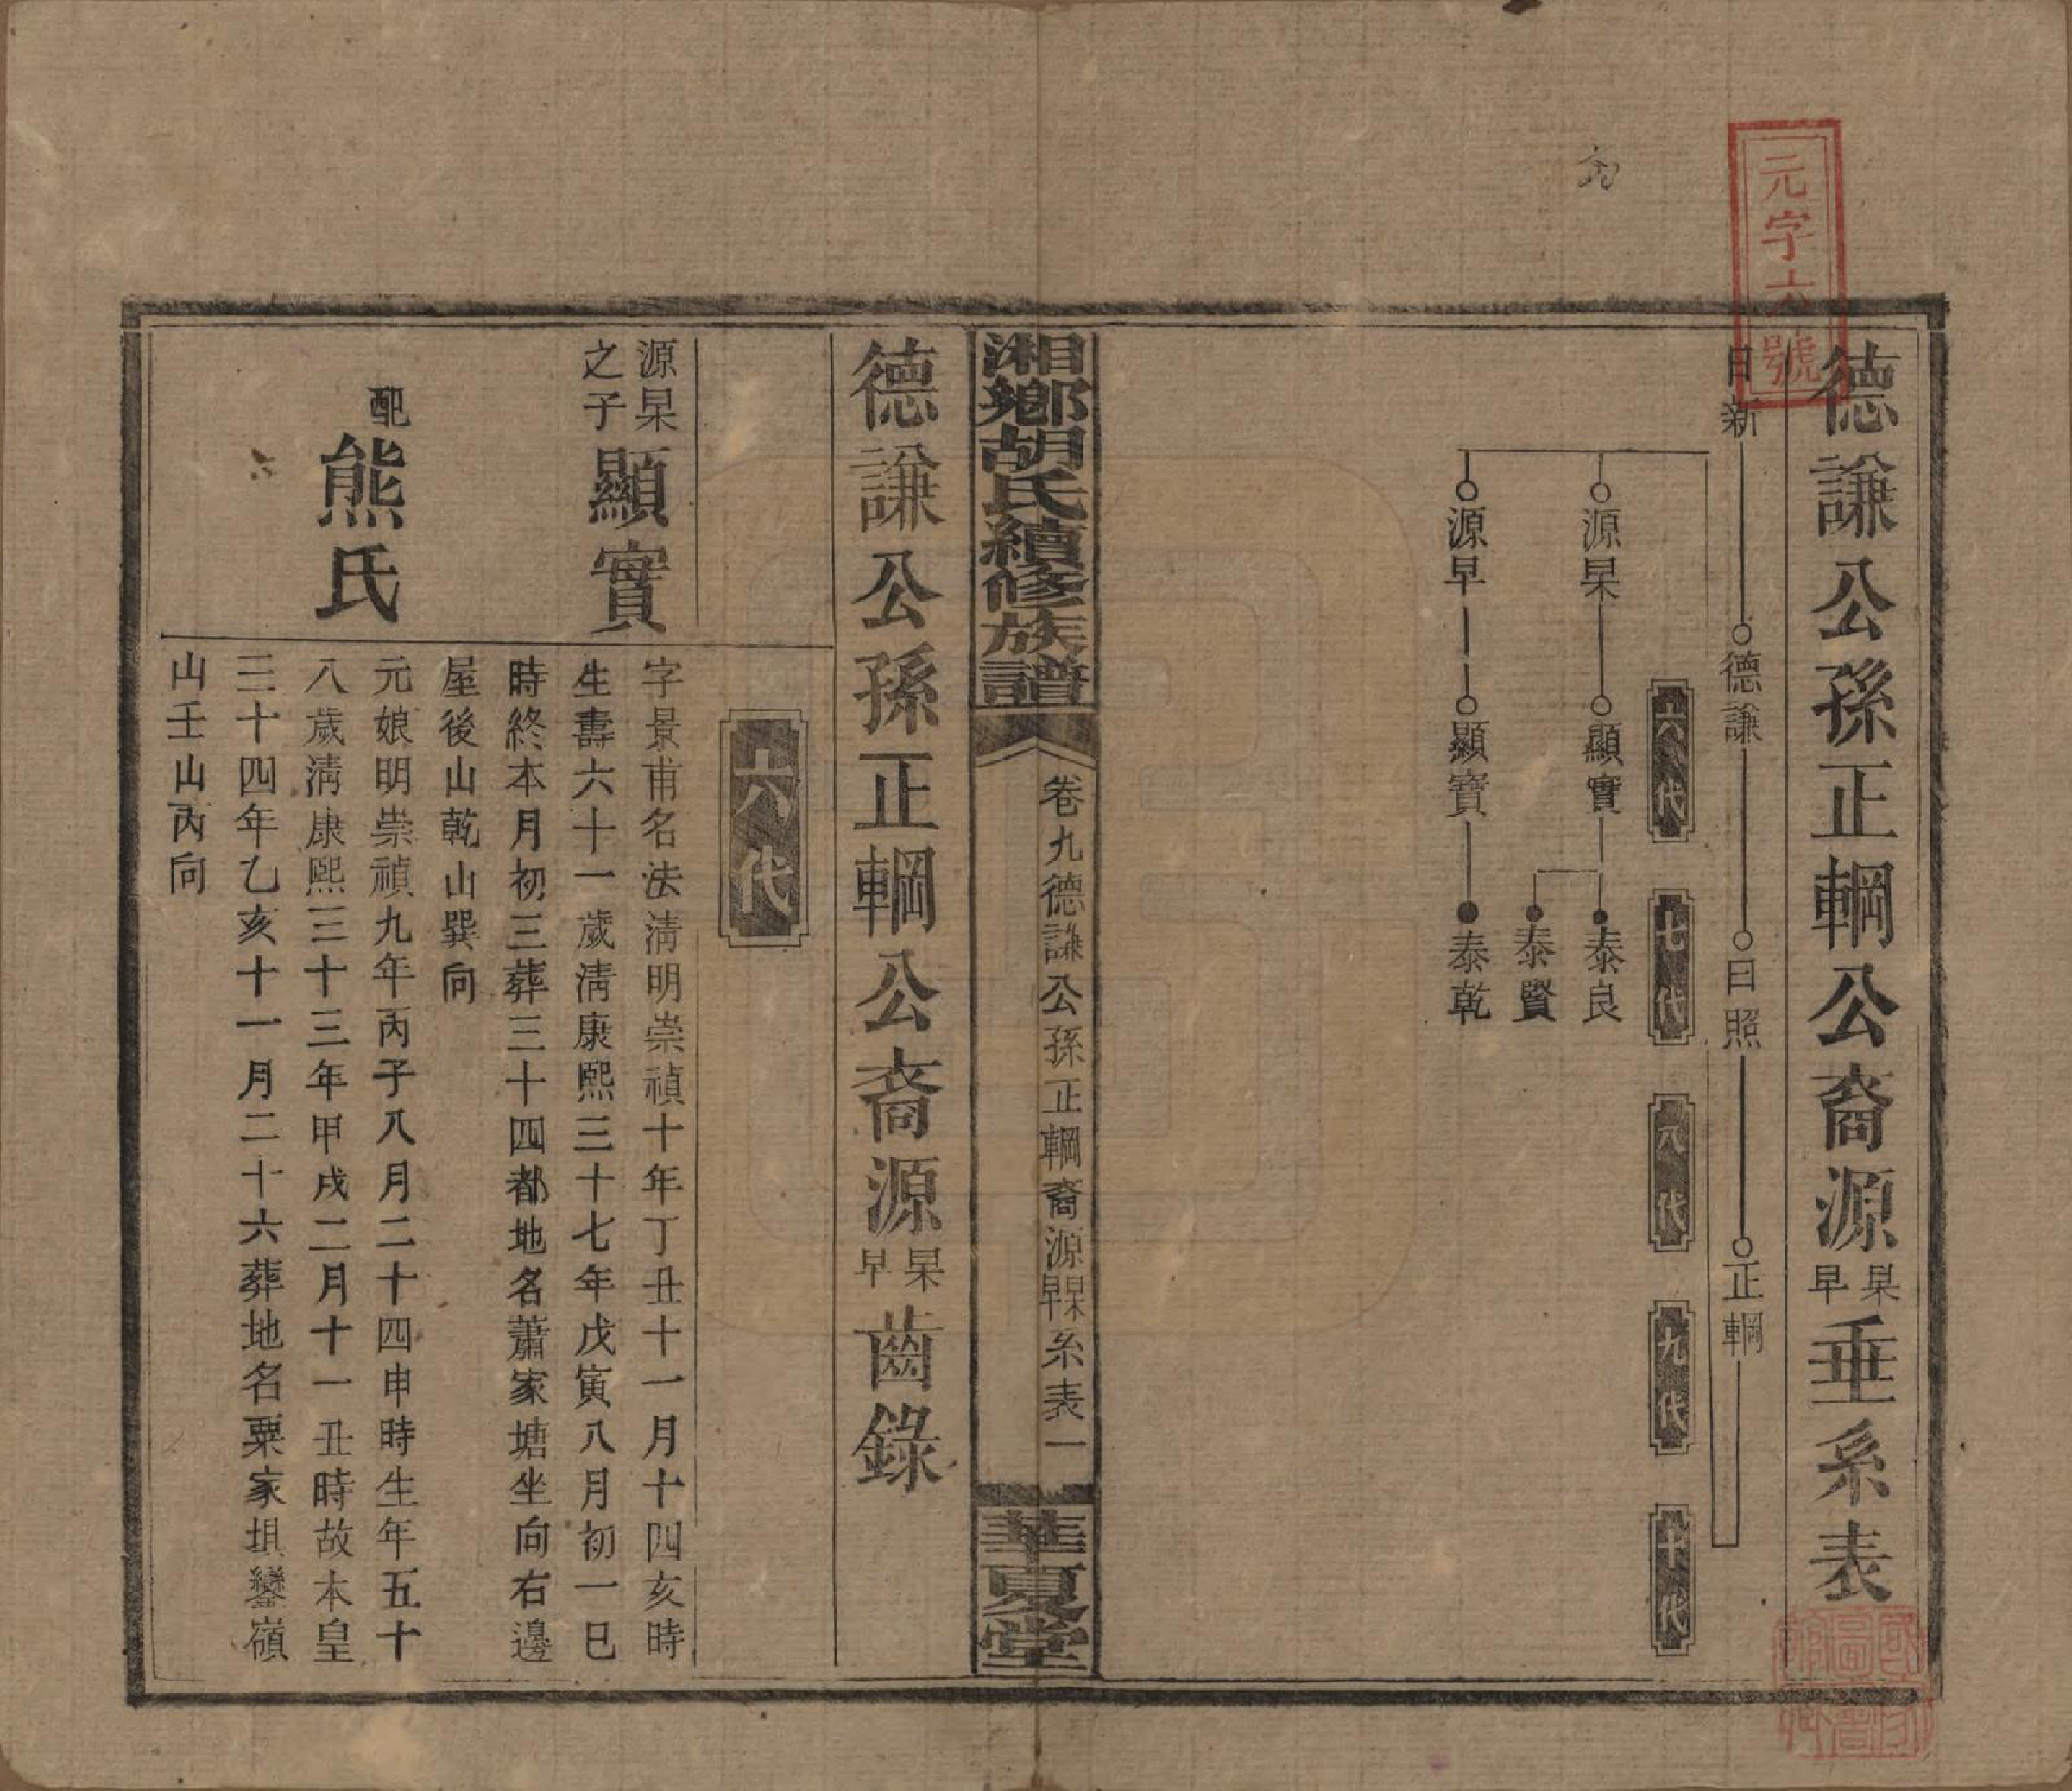 元字六號
德謙公孫正輞公裔源杲早垂系表
日新 德謙 日照 正輞
六代 七代 八代 九代 十代
源杲 顯實 泰良
泰賢
源早 顯寶 泰乾
湘鄉胡氏續修族譜
卷九德謙公孫正輞裔源杲早系表一
華夏堂
德謙公孫正輞公裔源杲早齒錄
六代
源杲之子顯實
字景甫名法淸明崇禎十年丁丑十一月十四亥時
生壽六十一歲淸康熙三十七年戊寅八月初一巳
時終本月初三葬三十四都地名蕭家塘坐向右邊
屋後山乾山巽向
配熊氏
元娘明崇禎九年丙子八月二十四申時生年五十
八歲淸康熙三十三年甲戌二月十一丑時故本皇
三十四年乙亥十一月二十六葬地名粟家垻鑾嶺
山壬山丙向